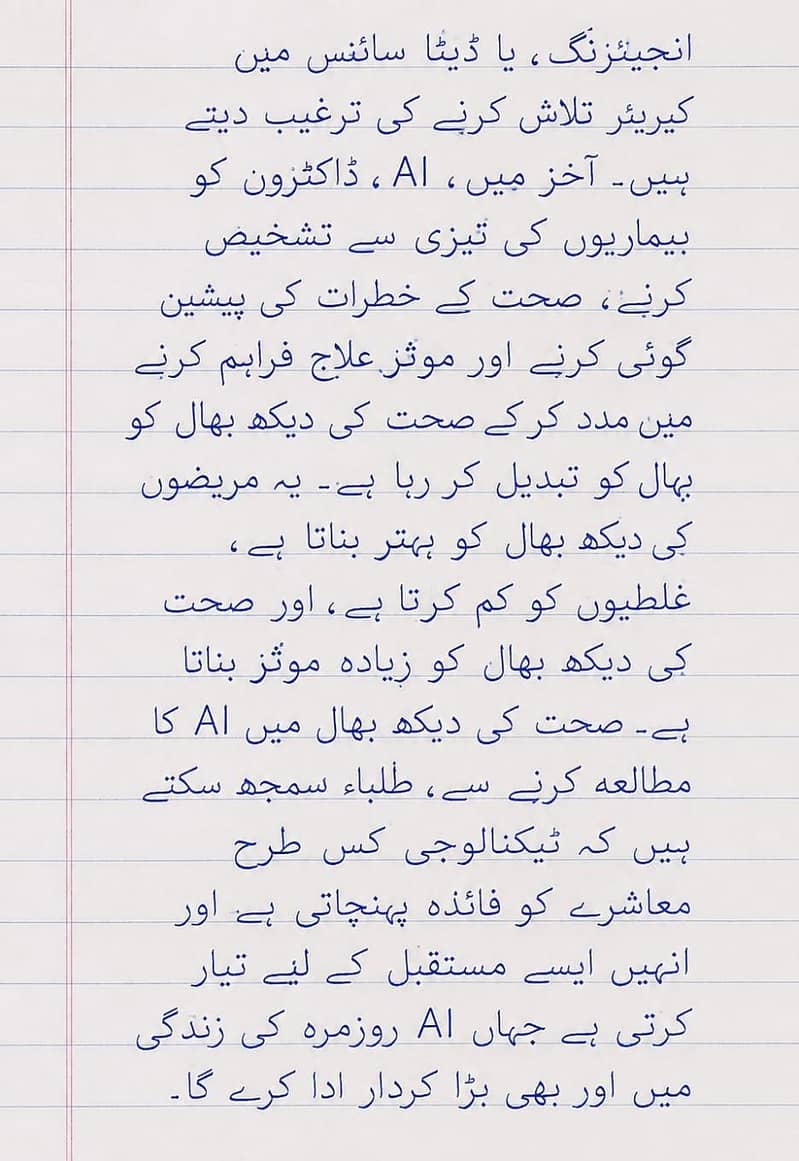 انجیئزنگ، یا ڈیٹا سائنس میں
کیریئر تلاش کرنے کی ترغیب دیتے
ہیں۔ آخز میں، AI، ڈاکٹزون کو
بیماریوں کی تیزی سے تشخیص
کرنے، صحت کے خطرات کی پیشین
گوئی کرنے اور موثز علاج فراہم کرنے
میں مدد کر کے صحت کی دیکھ بھال کو
بھال کو تبدیل کر رہا ہے۔ یہ مریضوں
کی دیکھ بھال کو بہتر بناتا ہے،
غلطیوں کو کم کرتا ہے، اور صحت
کی دیکھ بھال کو زیادہ موثز بناتا
ہے۔ صحت کی دیکھ بھال میں AI کا
مطالعہ کرنے سے، طلباء سمجھ سکتے
ہیں کہ ٹیکنالوجی کس طرح
معاشرے کو فائذہ پہنچاتی ہے اور
انہیں ایسے مستقبل کے لیے تیار
کرتی ہے جہاں AI روزمرہ کی زندگی
میں اور بھی بڑا کردار ادا کرے گا۔